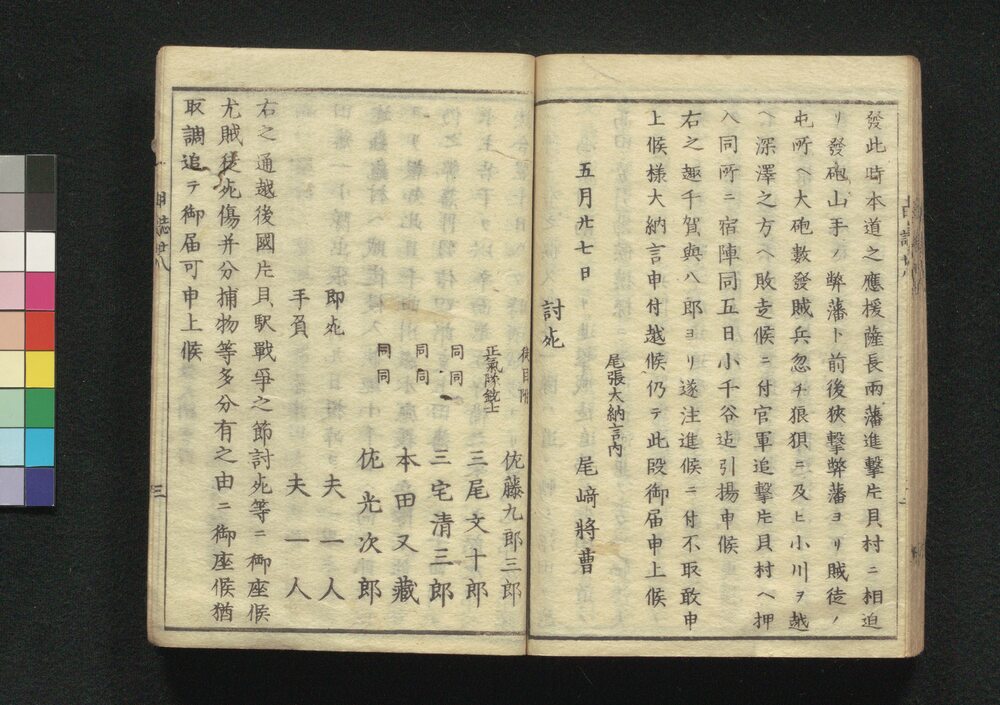 發此時本道之應援薩長兩藩進撃片貝村ニ相迫
リ發砲山手ノ弊藩ト前後狹撃弊藩ヨリ賊徒ノ
屯所ヘ大砲數發賊兵忽チ狼狽ニ及ヒ小川ヲ越
ヘ深澤之方ヘ敗走候ニ付官軍追撃片貝村ヘ押
入同所ニ宿陣同五日小千谷迠引揚申候
右之趣千賀與八郎ヨリ遂注進候ニ付不取敢申
上候樣大納言申付越候仍テ此段御届申上候
五月廿七日
尾張大納言内
尾﨑將曹
討死
徒目附
佐藤九郎三郎
正氣隊銃士
三尾文十郎
同同
三宅清三郎
同同
本田又藏
同同
佐光次郎
即死
夫一人
手負
夫一人
右之通越後國片貝駅戰爭之節討死等ニ御座候
尤賊徒死傷并分捕物等多分有之由ニ御座候猶
取調追テ御届可申上候
日誌廿八
三